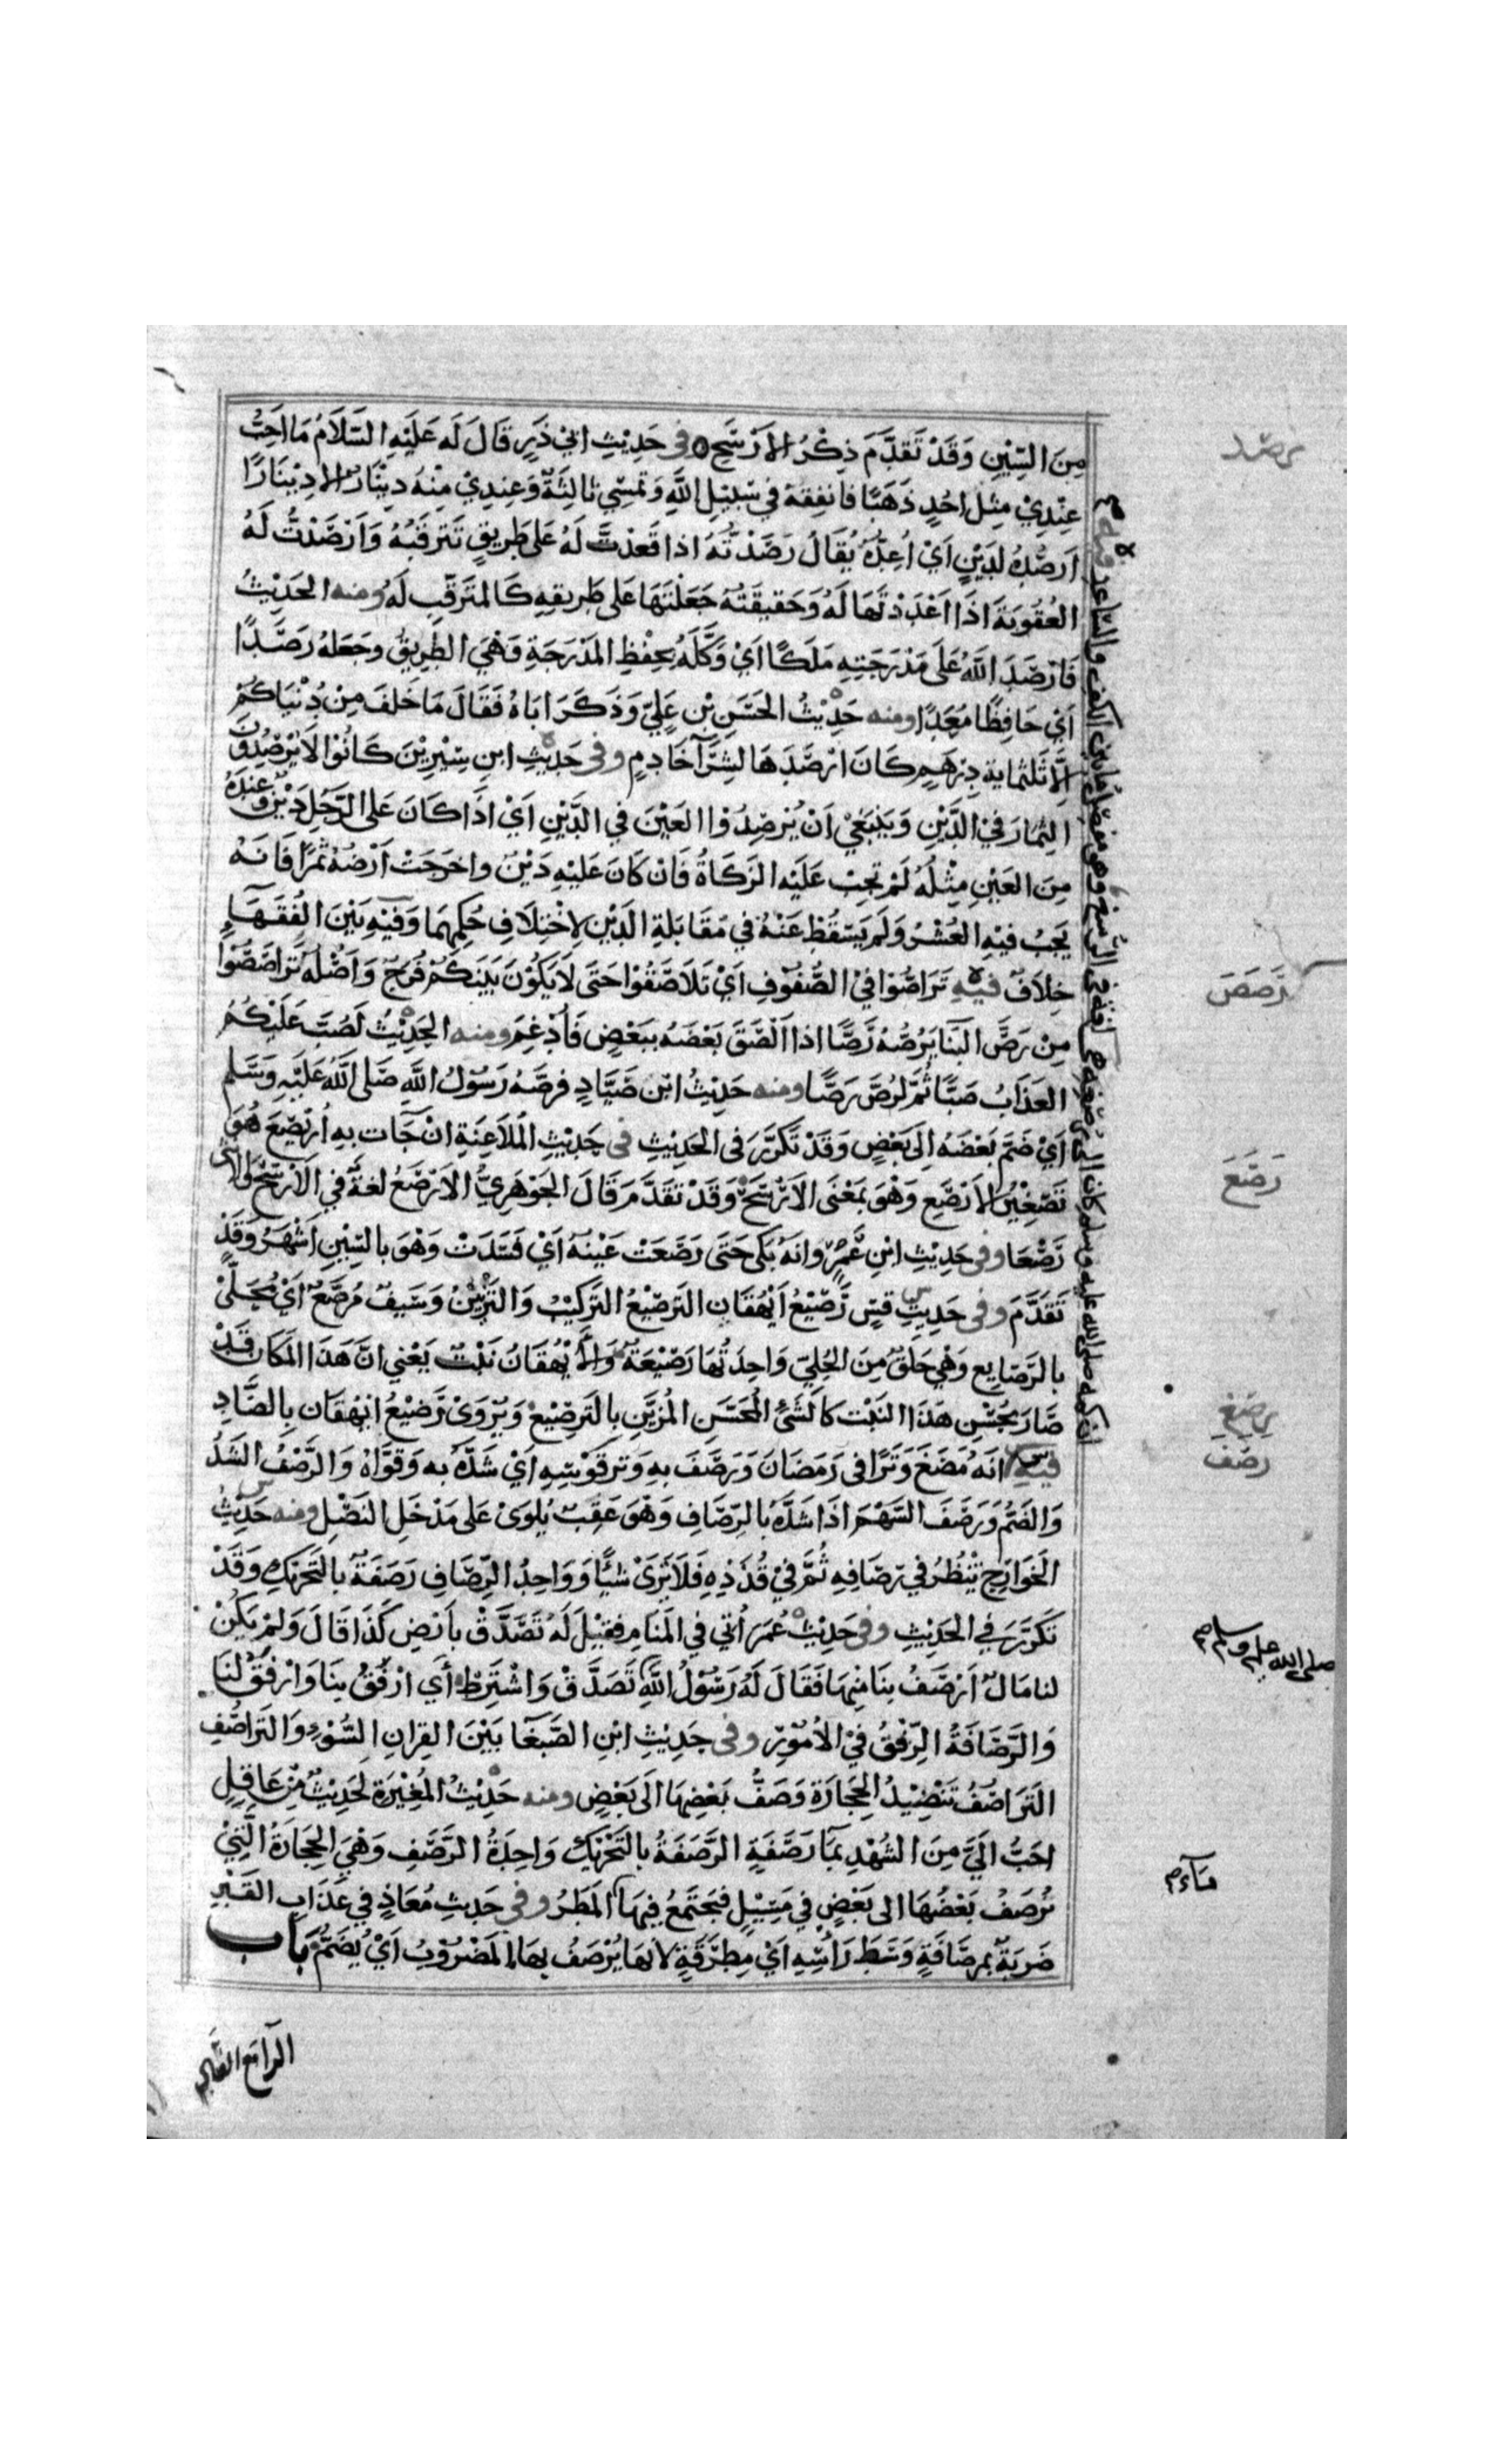 مِنَ السِّيْنِ وَقَدْ تَقَدَّمَ ذِكْرُ الأَرْسَحِ ه فى حَدِيْثِ ابى ذَرٍّ قَالَ لَه عَلَيْهِ السَّلَامُ مَا احِبُّ
عِنْدِيْ مِثلَ احُدٍ ذَهَبًا فانفِقهُ في سَبِيْلِ اللهِ وَتمْسِي ثالِثَةٌ وَعِندِيْ مِنْهُ دِيْنَارٌ الا دِيْنَارًا
اَرصُدُهُ لدَيْنٍ اَيْ اُعِدُّهُ يُقَالُ رَصَدْتُهُ اذا قَعدْتَّ لَهُ عَلى طَرِيقٍ تَتَرقَّبُهُ وَارْصَدْتُ لَهُ
العُقوبَةَ اذَا اعْدَدْتَهَا لَهُ وَحَقيقَتُهُ جَعَلْتَهَا عَلى طَرِيقهِ كَالمتَرَقّبِ لَهُ ومنه الحَدِيْثُ
فَارْصَدَ اللهُ عَلَى مَدْرَجَتِهِ مَلَكًا اَيْ وَكَّلَهُ بحِفْظِ المَدْرَجَةِ وَهْيَ الطرِيقُ وجَعَلهُ رَصَدًا
اَيْ حَافِظًا مُعَدًا ومنه حَدِيْثُ الحَسَنِ بْنِ عَلِيّ وَذَكَرَ ابَاهُ فَقَالَ مَا خَلفَ مِنْ دُنْيَاكُمْ
اِلَّا ثَلثماية دِرْهَمٍ كَانَ ارْصَدَهَا لشِرَآ خَادِمٍ وفى حَدِيْثِ ابنِ سِيْرِيْنَ كَانُوْا لَا يَرْصُدُونَ
الثِّمارَ فيْ الدَّيْنِ وَيَنبَغيْ اَنْ يُرْصِدُوْا العَيْنَ في الدَّيْنِ اَيْ اذَا كَانَ عَلى الرَّجُلِ دَيْنٌ وَعِنْدَهُ
مِنَ العَيْنِ مِثْلُهُ لَمْ تجِبْ عَلَيْه الزَكَاةُ فَانْ كَانَ عَليْهِ دَيْنٌ واخرَجَتْ اَرْضُهُ ثمَرًا فَانهُ
يَجبُ فيْهِ العُشْرُ وَلَم يَسْقُطْ عَنْهُ في مُقَابَلةِ الدَيْنِ لاخْتِلَافِ حُكمِهمَا وَفيْهِ بَيْنَ الفُقَهَاءِ
خِلَافٌ فيه تَرَاصُّوْا فيْ الصُّفوْفِ اَيْ تَلَاصَقُوْا حَتى لَا يَكوْنَ بَيْنَكمْ فُرَجٌ وَاصْلُه تَرَاصَصُوْا
مِنْ رَصَّ البِنَا يَرُصُّهُ رَصًّا اذا الْصَقَ بَعْضَهُ ببَعْضٍ فَادْغِمَ ومنه الحَدِيْثُ لَصُبَّ عَلَيْكُمُ
العَذَابُ صَبًّا ثُمَّ لرُصَّ رَصًّا ومنه حَدِيْثُ ابْنِ صَيَّادٍ فرصَّهُ رَسُوْلُ اللهِ صَلى اللهُ عَلَيْهِ وَسَلم
اَيْ ضَمَّ بَعْضَهُ اِلى بَعْضٍ وَقَدْ تَكَرَّرَ فى الحَدِيْثِ فى حَدِيْثِ المُلَاعنَةِ انْ جَآت بهِ اُرَيْصِعَ هُوَ
تَصْغِيْرُ الأَرْصَعِ وَهْوَ بمَعْنَى الاَرْسَحِ وَقَدْ تقَدَّمَ قَالَ الجَوْهَرِيُّ الاَرْصَعُ لغةٌ في الاَرْسَحِ وَالاُنثى
رَصْعَا وفى حَدِيْثِ ابْنِ عُمَرَ وانهُ بَكى حَتى رَصَعَتْ عَيْنهُ اَيْ فَسَدَتْ وَهْوَ بالسِيْنِ اَشْهَرُ وَقدْ
تَقَدَّمَ وفى حَدِيثِ قسٍّ رَصِيْعُ اَيْهُقَانٍ التَرصِيْعُ التَركيْبُ وَالتَزْيِيْنُ وَسَيفٌ مُرَصَّعٌ اَيْ مُحَلَّىً
بالرَّصَايِع وَهْيَ حَلقٌ مِنَ الحُليّ وَاحِدَتُهَا رَصِيْعَةٌ وَالأَيْهُقَانُ نَبْتٌ يَعْني انَّ هَذَا المَكَان قَدْ
صَارَ بحُسْنِ هَذَا النَبْتِ كَالشَيْءِ المُحَسَّنِ المُزيَّنِ بالتَرصِيْعِ وَيُرْوَىْ رَضِيْعُ ايْهُقَان بِالضَّادِ
فيه انَهُ مَضَغَ وَتَرًا فى رَمَضَانَ وَرَصَفَ بهِ وَترَ قَوْسِهِ اَيْ شَدَّهُ به وَقوَّاهُ وَالرَّصْفُ الشَدُّ
وَالضَمُّ وَرَصَفَ السَّهْمَ اذَا شَدَّهُ بالرِّصَافِ وَهْوَ عَقَبٌ يُلوَىْ عَلى مَدْخَلِ النَصْلِ ومنه حَدِيْثُ
الخَوَارِجِ يَنْظُرُ في رِصَافِهِ ثُمَّ فيْ قُذَذِهِ فَلَا يَرَىْ شَيْأً وَوَاحِدُ الرِّصَافِ رَصَفَةٌ بالتَحرِيكِ وَقَدْ
تَكَرَّرَ في الحَدِيْثِ وفى حَدِيْثِ عُمَرَ اُتي في المَنَامِ فقِيْلَ لَهُ تَصَدَّقْ بِاَرْضِ كَذَا قَالَ وَلمْ يَكُنْ
لنا مَالٌ اَرْصَفُ بنَا مِنهَا فَقَالَ لَهُ رَسُوْلُ اللهِ تَصَدَّقْ وَاشْتَرِطْ أَي ارْفَقُ بنَا وَارْفَقُ لنَا
وَالرَّصَافَةُ الرِّفْقُ فيْ الأُمُوْرِ وفى حَدِيْثِ ابْنِ الصَّبْغَا بَيْنَ القِرَانِ السُّوْءِ وَالتَرَاصُفِ
التَرَاصُفُ تَنْضِيْدُ الحِجَارَةِ وَصَفُّ بَعْضِهَا الَى بَعْضٍ ومنه حَدِيْثُ المُغِيْرَةِ لحَدِيْثٌ مِنْ عَاقِلٍ
احَبُّ اليَّ مِنَ الشَهْدِ بمَا رَصَفَةٍ الرَّصَفَةُ بالتَحْرِيْكِ وَاحِدَةُ الرَّصَفِ وَهْيَ الحِجَارَةُ الَّتِيْ
تُرْصَفُ بَعْضُهَا الى بَعْضٍ في مَسِيْلٍ فيَجتَمعُ فِيهَا المَطَرُ وفى حَدِيثِ مُعَاذٍ في عَذَابِ القَبْرِ
ضَرَبَهُ بمِرصَافَةٍ وَسَطَ رَأْسِهِ اَيْ مِطْرَقَةٍ لأَنهَا يُرْصَفُ بهَا المَضْرُوْبُ اَيْ يُضَمُّ بَاب
رصد
رَصَصَ
رَصَعَ
رصغ
رصف
صلى الله عليه وسلم صح
مآء صح
الرآ مع الضاد